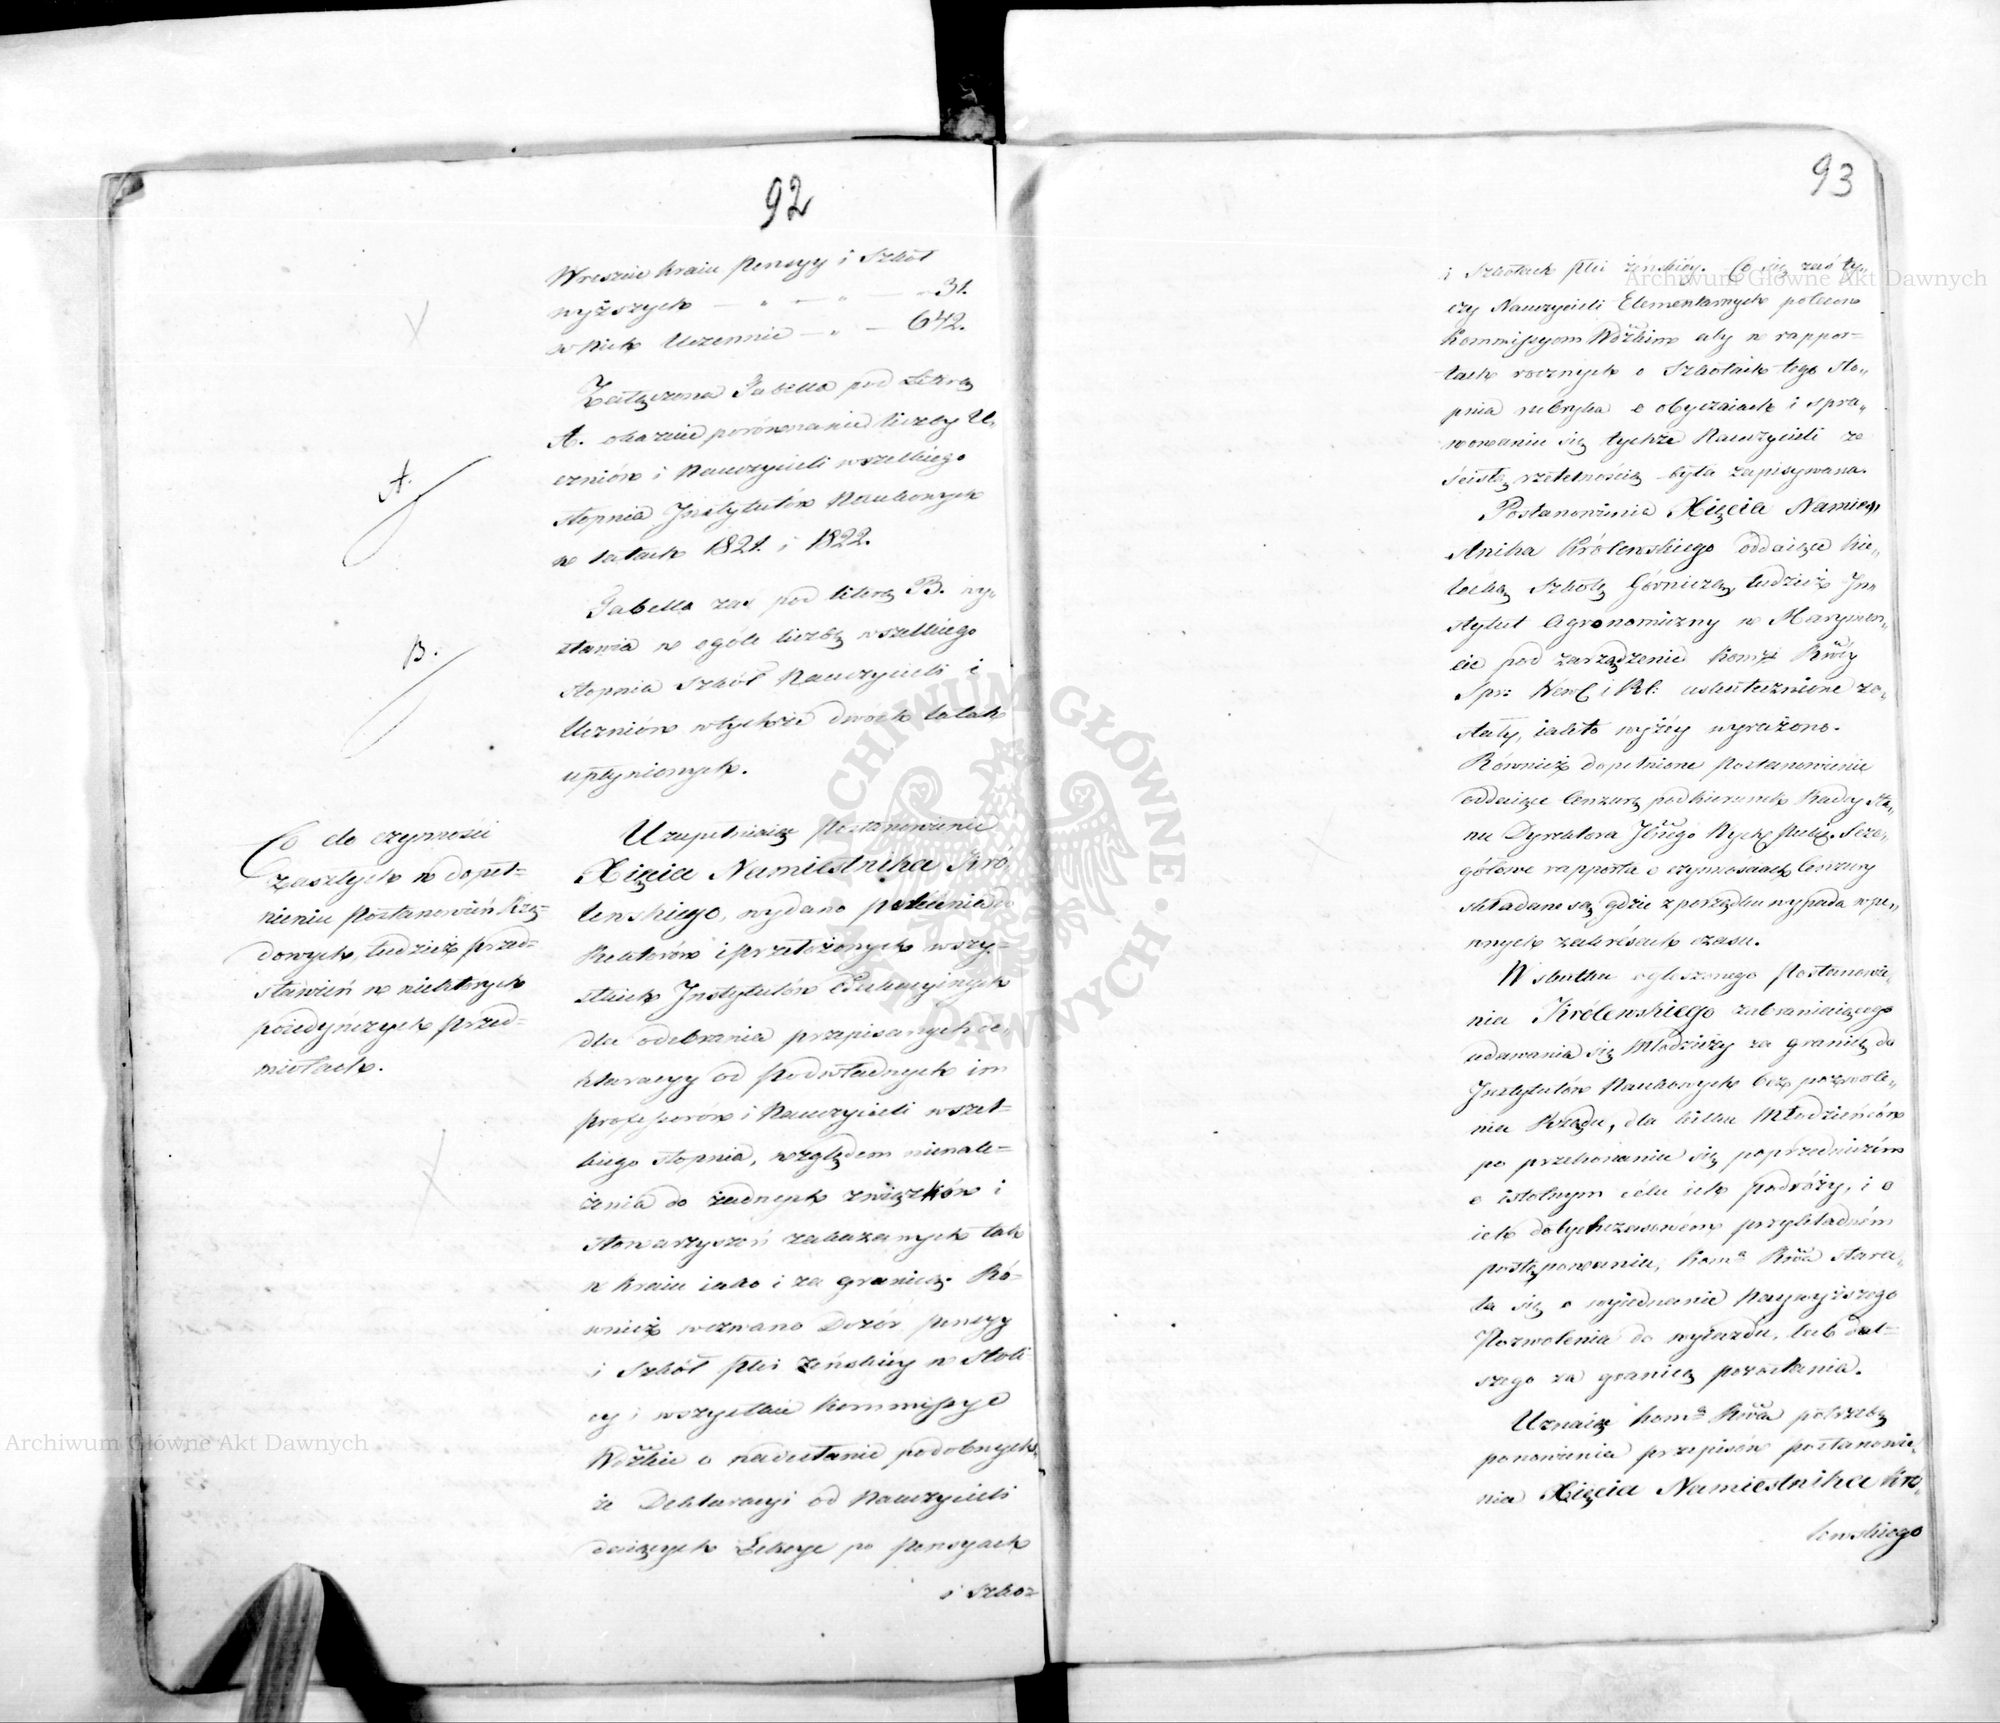 92
W reszcie kraiu Pensyy i Szkół
wyższych — „ — „ — 31.
w nich Uczennic — „ — 642.
Załączona Tabella pod Literą
A. okazuie porównanie liczby U„
czniów i Nauczycieli wszelkiego
stopnia Instytutów Naukowych
w latach 1821. i 1822.
A.
Tabella zaś pod literą B. wy„
stawia w ogóle liczbę wszelkiego
stopnia Szkół Nauczycieli i
Uczniów w tychże dwóch latach
upłynionych.
B.
Co do czynności
zaszłych w dopeł-
nieniu Postanowień Rzą-
dowych, tudzież przed-
stawień w niektórych
poiedyńczych przed-
miotach.
Uzupełniaiąc Postanowienie
Xięcia Namiestnika Kró
lewskiego, wydano polecenia do
Rektorów i przełożonych wszy-
stkich Instytutów Edukacyinych
dla odebrania przepisanych de„
klaracyy od Podwładnych im
professorów i Nauczycieli wszel-
kiego stopnia, względem nienale-
żenia do żadnych związków i
stowarzyszeń zakazanych tak
w kraiu iako i za granicą. Ró-
wnież wezwano Dozór Pensyy
i Szkół płci żeńskiéy w Stoli
cy i wszystkie Kommissye
Wdzkie o nadesłanie podobnych„
że Deklaracyi od Nauczycieli
daiących Lekcye po Pensyach
i Szko-
93
i Szkołach płci żeńskiéy. Co się zaś ty„
czy Nauczycieli Elementarnych polecono
Kommissyom Wdzkim aby w rappor-
tach rocznych o Szkołach tego sto„
pnia rubryka o obyczaiach i spra„
wowaniu się tychże Nauczycieli ze
ścisłą rzetelnością była zapisywana.
Postanowienia Xięcia Namie„
stnika Królewskiego oddaiące Kie„
lecką Szkołę Górniczą, tudzież In„
stytut Agronomiczny w Marymon„
cie pod zarządzenie Kommi Rząd:
Spr: Wew: i Pol: uskutecznione zo„
stały, iakto wyżéy wyrażono.
Również dopełnione Postanowienie
oddaiące Cenzurę pod kierunek Radcy Sta„
nu Dyrektora Jlnego Wych: Publ: Szcze„
gółowe rapporta o czynnościach Cenzury
składane są gdzie z porządku wypada w pe„
wnych zakresach czasu.
W skutku ogłoszonego Postanowie„
nia Królewskiego zabraniaiącego
udawania się Młodzieży za granicę do
Instytutów Naukowych bez pozwole„
nia Rządu, dla kilku Młodzieńców
po przekonaniu się poprzedniczém
o istotnym celu ich podróży, i o
ich dotychczasowém przykładném
postępowaniu, Komma Rząda stara„
ła się o wyiednanie Naywyższego
Pozwolenia do wyiazdu, lub dal-
szego za granicą pozostania.
Uznaiąc Komma Rząda potrzebę
ponowienia przepisów postanowie„
nia Xięcia Namiestnika Kró„
lewskiego
Archiwum Główne Akt Dawnych
Archiwum Główne Akt Dawnych
ARCHIWUM GŁÓWNE AKT DAWNYCH